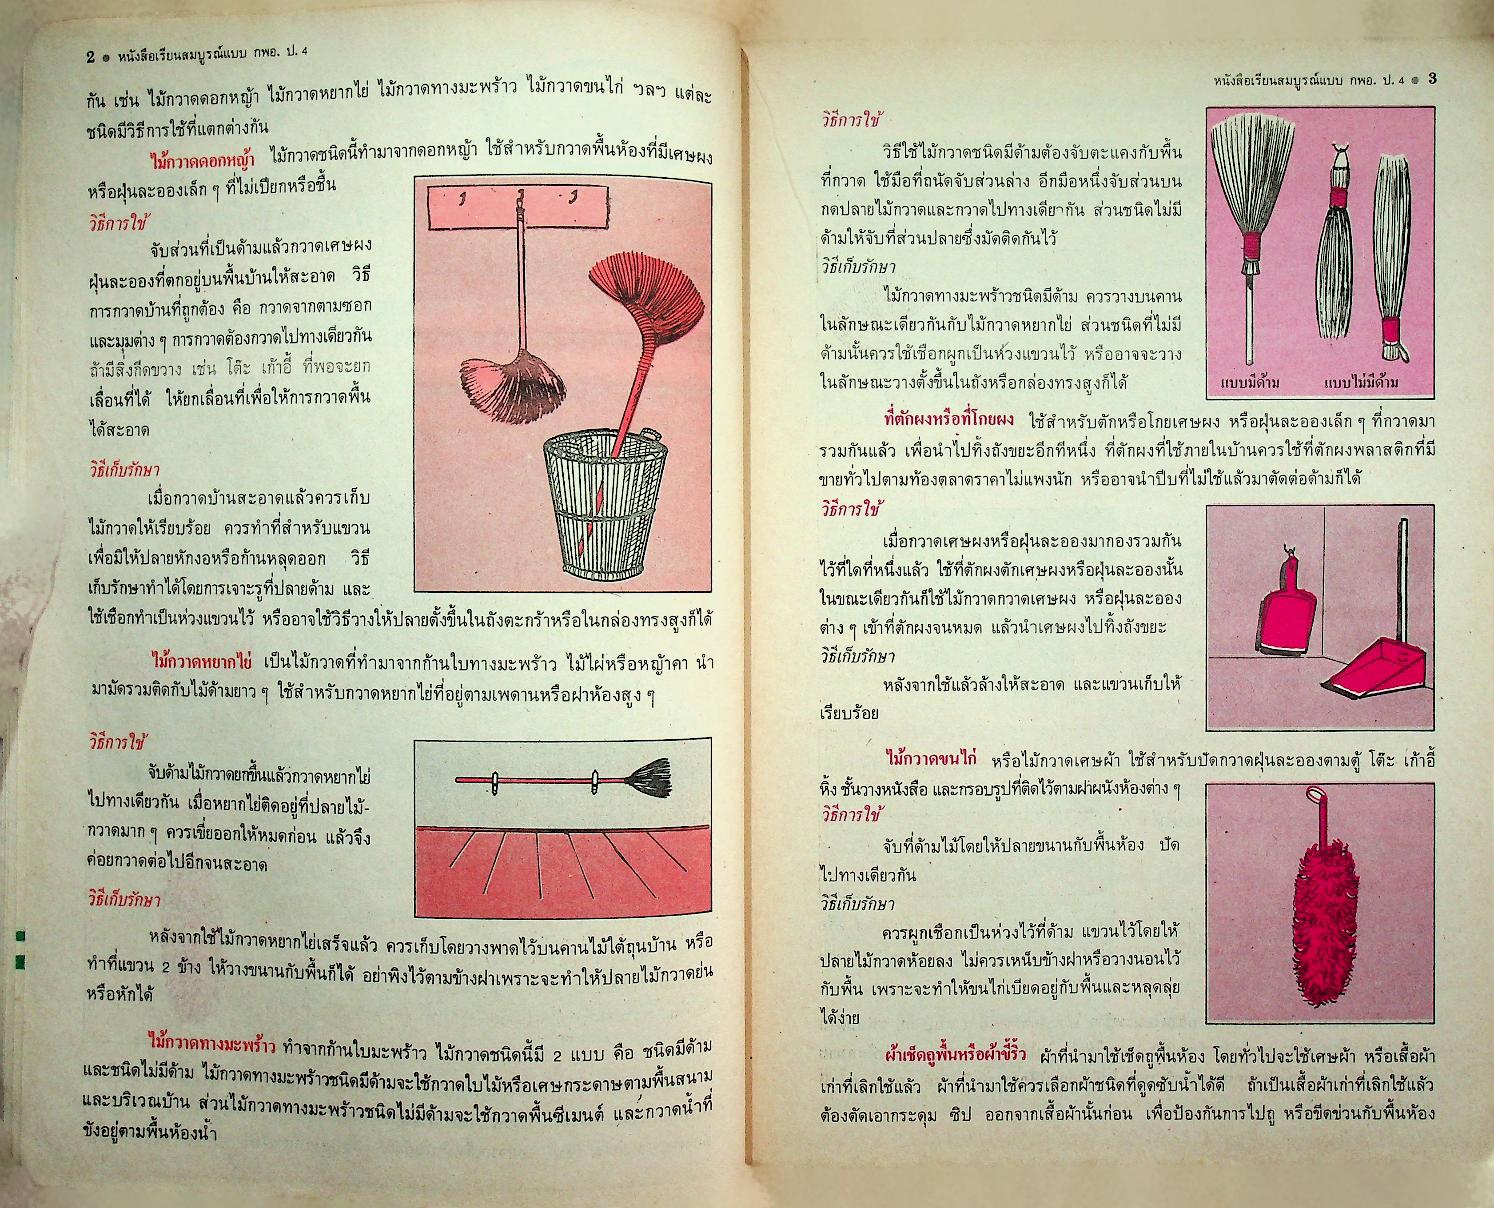 2 ● หนังสือเรียนสมบูรณ์แบบ กพอ. ป. 4
กัน เช่น ไม้กวาดดอกหญ้า ไม้กวาดหยากไย่ ไม้กวาดทางมะพร้าว ไม้กวาดขนไก่ ฯลฯ แต่ละ
ชนิดมีวิธีการใช้ที่แตกต่างกัน
ไม้กวาดดอกหญ้า ไม้กวาดชนิดนี้ทำมาจากดอกหญ้า ใช้สำหรับกวาดพื้นห้องที่มีเศษผง
หรือฝุ่นละอองเล็ก ๆ ที่ไม่เปียกหรือชื้น
วิธีการใช้
จับส่วนที่เป็นด้ามแล้วกวาดเศษผง
ฝุ่นละอองที่ตกอยู่บนพื้นบ้านให้สะอาด วิธี
การกวาดบ้านที่ถูกต้อง คือ กวาดจากตามซอก
และมุมต่าง ๆ การกวาดต้องกวาดไปทางเดียวกัน
ถ้ามีสิ่งกีดขวาง เช่น โต๊ะ เก้าอี้ ที่พอจะยก
เลื่อนที่ได้ ให้ยกเลื่อนที่เพื่อให้การกวาดพื้น
ได้สะอาด
วิธีเก็บรักษา
เมื่อกวาดบ้านสะอาดแล้วควรเก็บ
ไม้กวาดให้เรียบร้อย ควรทำที่สำหรับแขวน
เพื่อมิให้ปลายหักงอหรือก้านหลุดออก วิธี
เก็บรักษาทำได้โดยการเจาะรูที่ปลายด้าม และ
ใช้เชือกทำเป็นห่วงแขวนไว้ หรืออาจใช้วิธีวางให้ปลายตั้งขึ้นในถังตะกร้าหรือในกล่องทรงสูงก็ได้
ไม้กวาดหยากไย่ เป็นไม้กวาดที่ทำมาจากก้านใบทางมะพร้าว ไม้ไผ่หรือหญ้าคา นำ
มามัดรวมติดกับไม้ด้ามยาว ๆ ใช้สำหรับกวาดหยากไย่ที่อยู่ตามเพดานหรือฝาห้องสูง ๆ
วิธีการใช้
จับด้ามไม้กวาดยกขึ้นแล้วกวาดหยากไย่
ไปทางเดียวกัน เมื่อหยากไย่ติดอยู่ที่ปลายไม้-
กวาดมาก ๆ ควรเขี่ยออกให้หมดก่อน แล้วจึง
ค่อยกวาดต่อไปอีกจนสะอาด
วิธีเก็บรักษา
หลังจากใช้ไม้กวาดหยากไย่เสร็จแล้ว ควรเก็บโดยวางพาดไว้บนคานไม้ใต้ถุนบ้าน หรือ
ทำที่แขวน 2 ข้าง ให้วางขนานกับพื้นก็ได้ อย่าพิงไว้ตามข้างฝาเพราะจะทำให้ปลายไม้กวาดย่น
หรือหักได้
ไม้กวาดทางมะพร้าว ทำจากก้านใบมะพร้าว ไม้กวาดชนิดนี้มี 2 แบบ คือ ชนิดมีด้าม
และชนิดไม่มีด้าม ไม้กวาดทางมะพร้าวชนิดมีด้ามจะใช้กวาดใบไม้หรือเศษกระดาษตามพื้นสนาม
และบริเวณบ้าน ส่วนไม้กวาดทางมะพร้าวชนิดไม่มีด้ามจะใช้กวาดพื้นซีเมนต์ และกวาดน้ำที่
ขังอยู่ตามพื้นห้องน้ำ
หนังสือเรียนสมบูรณ์แบบ กพอ. ป. 4 ● 3
วิธีการใช้
วิธีใช้ไม้กวาดชนิดมีด้ามต้องจับตะแคงกับพื้น
ที่กวาด ใช้มือที่ถนัดจับส่วนล่าง อีกมือหนึ่งจับส่วนบน
กดปลายไม้กวาดและกวาดไปทางเดียวกัน ส่วนชนิดไม่มี
ด้ามให้จับที่ส่วนปลายซึ่งมัดติดกันไว้
วิธีเก็บรักษา
ไม้กวาดทางมะพร้าวชนิดมีด้าม ควรวางบนคาน
ในลักษณะเดียวกันกับไม้กวาดหยากไย่ ส่วนชนิดที่ไม่มี
ด้ามนั้นควรใช้เชือกผูกเป็นห่วงแขวนไว้ หรืออาจจะวาง
ในลักษณะวางตั้งขึ้นในถังหรือกล่องทรงสูงก็ได้
แบบมีด้าม แบบไม่มีด้าม
ที่ตักผงหรือที่โกยผง ใช้สำหรับตักหรือโกยเศษผง หรือฝุ่นละอองเล็ก ๆ ที่กวาดมา
รวมกันแล้ว เพื่อนำไปทิ้งถังขยะอีกทีหนึ่ง ที่ตักผงที่ใช้ภายในบ้านควรใช้ที่ตักผงพลาสติกที่มี
ขายทั่วไปตามท้องตลาดราคาไม่แพงนัก หรืออาจนำปี๊บที่ไม่ใช้แล้วมาตัดต่อด้ามก็ได้
วิธีการใช้
เมื่อกวาดเศษผงหรือฝุ่นละอองมากองรวมกัน
ไว้ที่ใดที่หนึ่งแล้ว ใช้ที่ตักผงตักเศษผงหรือฝุ่นละอองนั้น
ในขณะเดียวกันก็ใช้ไม้กวาดกวาดเศษผง หรือฝุ่นละออง
ต่าง ๆ เข้าที่ตักผงจนหมด แล้วนำเศษผงไปทิ้งถังขยะ
วิธีเก็บรักษา
หลังจากใช้แล้วล้างให้สะอาด และแขวนเก็บให้
เรียบร้อย
ไม้กวาดขนไก่ หรือไม้กวาดเศษผ้า ใช้สำหรับปัดกวาดฝุ่นละอองตามตู้ โต๊ะ เก้าอี้
หิ้ง ชั้นวางหนังสือ และกรอบรูปที่ติดไว้ตามฝาผนังห้องต่าง ๆ
วิธีการใช้
จับที่ด้ามไม้โดยให้ปลายขนานกับพื้นห้อง ปัด
ไปทางเดียวกัน
วิธีเก็บรักษา
ควรผูกเชือกเป็นห่วงไว้ที่ด้าม แขวนไว้โดยให้
ปลายไม้กวาดห้อยลง ไม่ควรเหน็บข้างฝาหรือวางนอนไว้
กับพื้น เพราะจะทำให้ขนไก่เบียดอยู่กับพื้นและหลุดลุ่ย
ได้ง่าย
ผ้าเช็ดถูพื้นหรือผ้าขี้ริ้ว ผ้าที่นำมาใช้เช็ดถูพื้นห้อง โดยทั่วไปจะใช้เศษผ้า หรือเสื้อผ้า
เก่าที่เลิกใช้แล้ว ผ้าที่นำมาใช้ควรเลือกผ้าชนิดที่ดูดซับน้ำได้ดี ถ้าเป็นเสื้อผ้าเก่าที่เลิกใช้แล้ว
ต้องตัดเอากระดุม ซิป ออกจากเสื้อผ้านั้นก่อน เพื่อป้องกันการไปถู หรือขีดข่วนกับพื้นห้อง